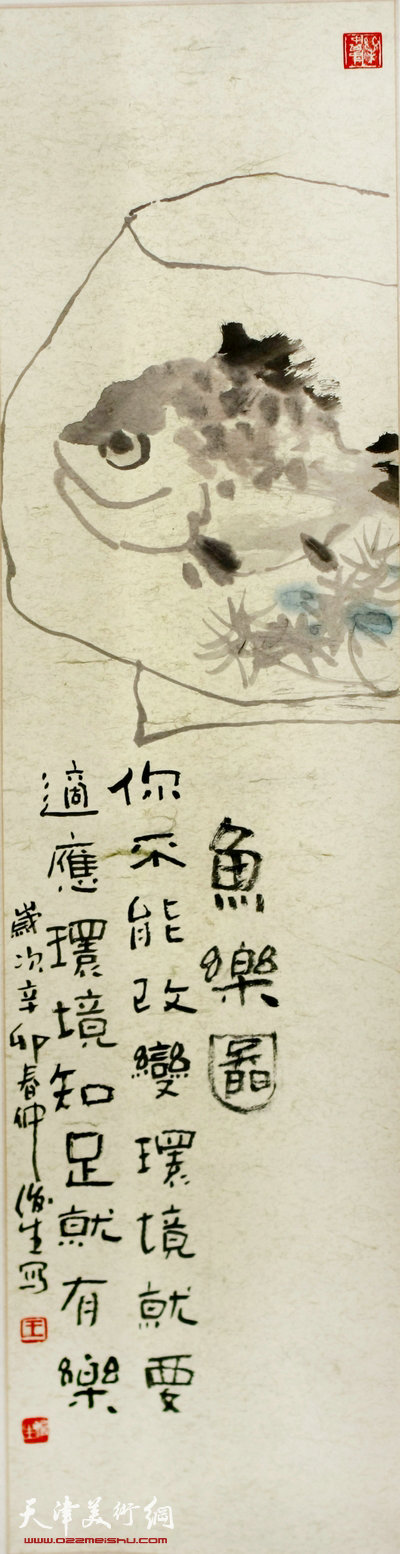 魚樂圖
你不能改變環境就要
適應環境知足就有樂
歲次辛卯春仲俊生写
王
天津美術網
www.022meishu.com